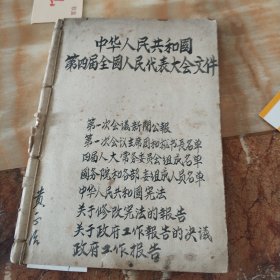 中华人民共和國
第四届全國人民代表大会文件
第一次会议新闻公報
第一次会议主席团和秘书長名单
四届人大常务委员会组成名单
國务院和各部委组成人員名单
中华人民共和國宪法
关于修改宪法的報告
关于政府工作報告的决议
政府工作报告